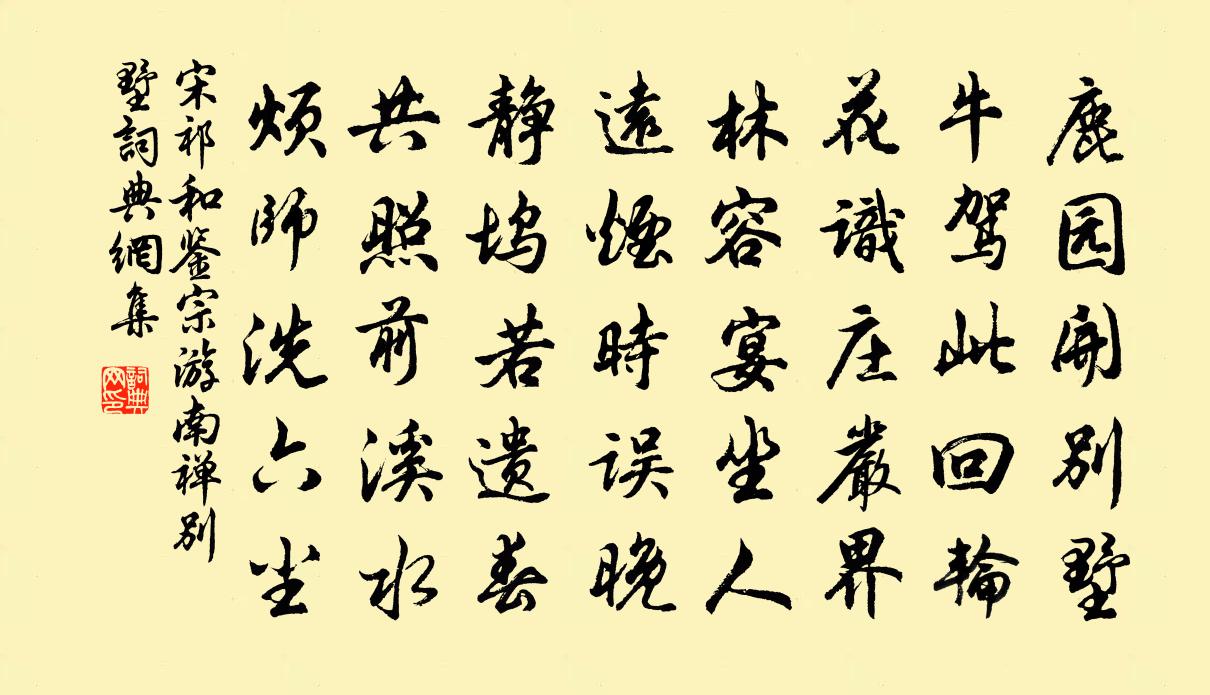 鹿园開别墅
牛驾此回輪
花識庄嚴界
林容宴坐人
遠煙時误晚
静坞若遗春
共照前溪水
烦师洗六尘
宋祁和鉴宗游南禅别
墅詞典網集
詞典
网印